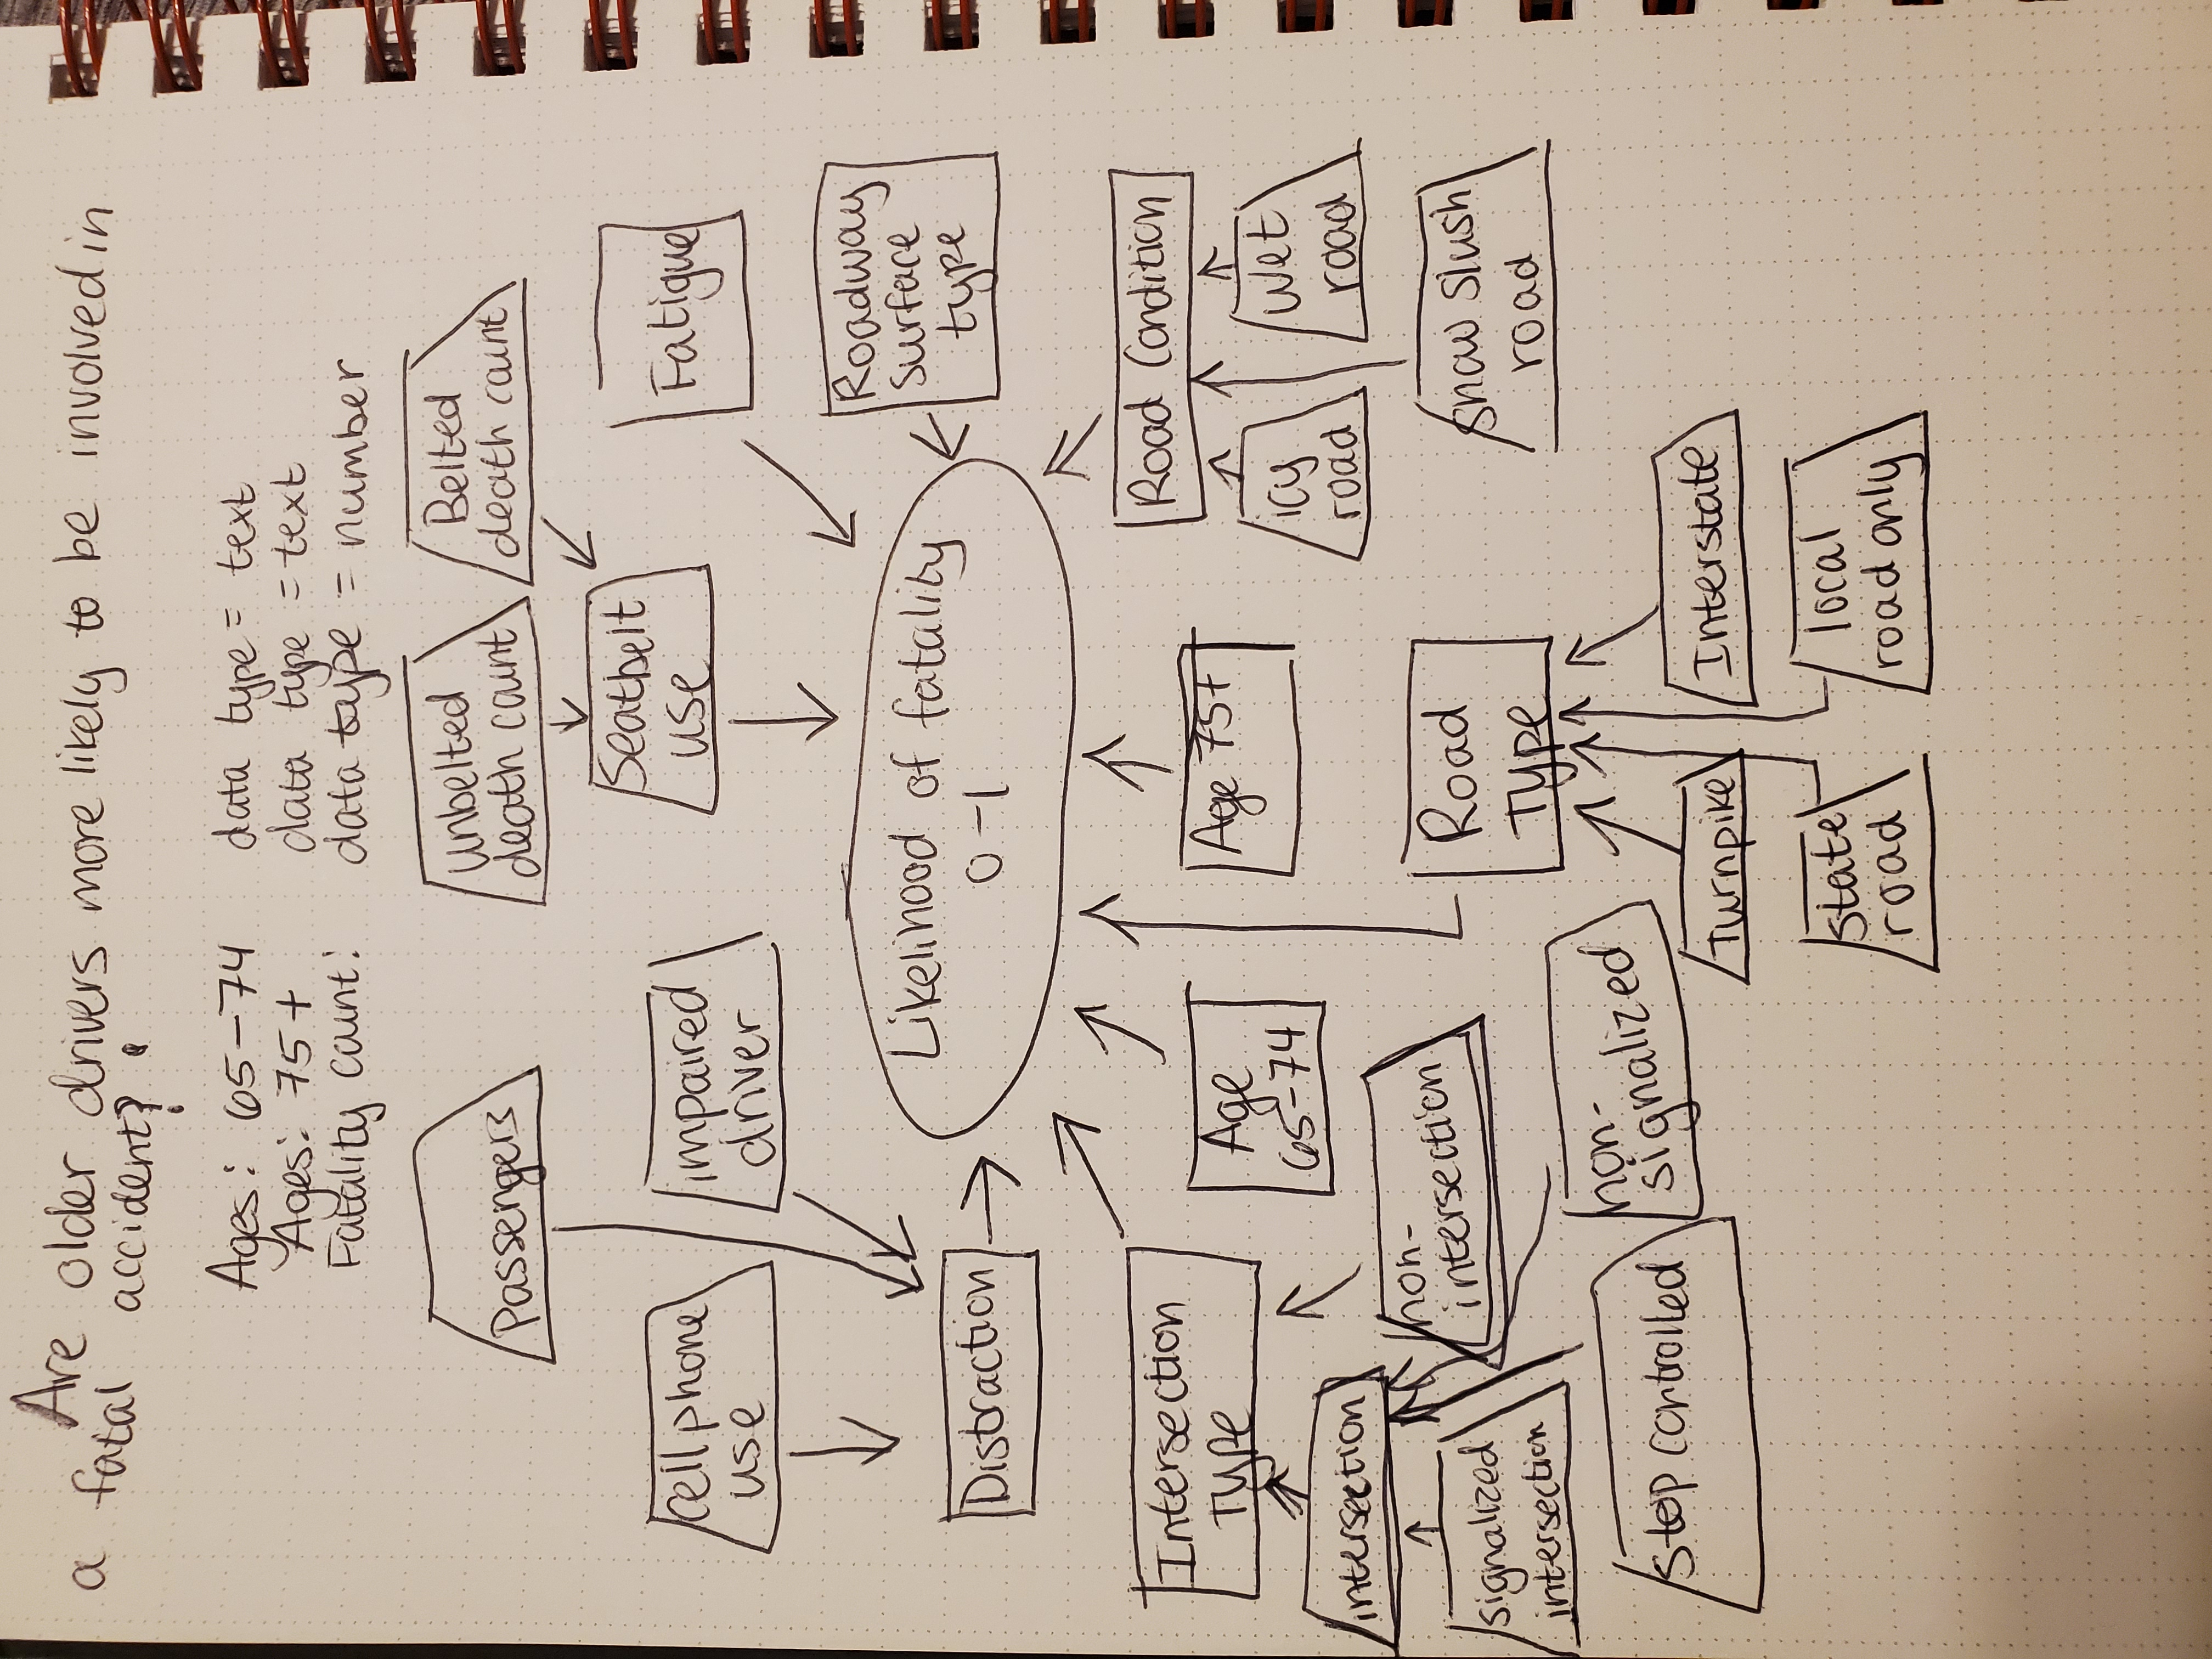 Are older drivers more likely to be involved in
a fatal accident?
Ages: 65-74 data type = text
Ages: 75+ data type = text
Fatality count: data type = number
Passengers
Unbelted
death count
Belted
death count
Seatbelt
use
Fatigue
cell phone
use
impaired
driver
Roadway
surface
type
Likelihood of fatality
0-1
Distraction
Intersection
Type
Age
65-74
Age 75+
Road Condition
icy
road
wet
road
intersection
non-
intersection
signalized
intersection
Road
Type
snow slush
road
stop controlled
non-
signalized
Turnpike
Interstate
state
road
local
road only